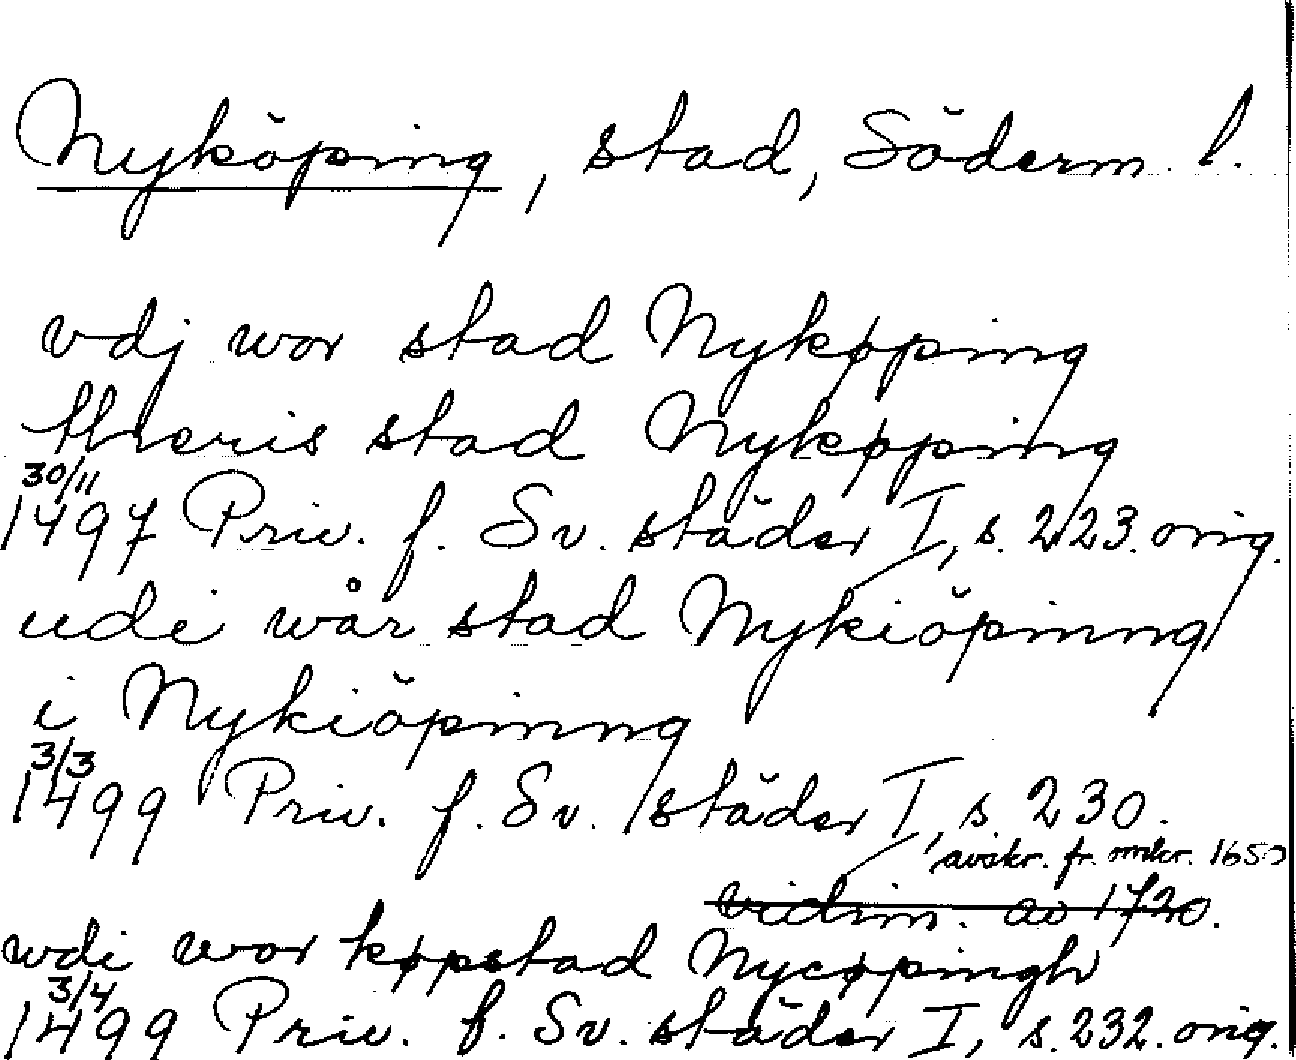 Nyköping, stad, Söderm. l.
vdj wor stad Nykøpping
theris stad Nykøpping
30/11
1497 Priv. f. Sv. städer I, s. 223. orig.
udi wår stad Nykiöpinng
i Nykiöpinng
3/3
1499 Priv. f. Sv. städer I, s. 230.
avskr. fr. omkr. 1650
vidim. av 1720.
wdi wor køpstad Nycøpingh
3/4
1499 Priv. f. Sv. städer I, s. 232. orig.